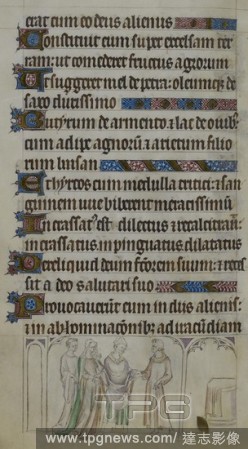 erat cum eo deus alienus
Constituit eum super excelsam ter
ram: ut comederet fructus agrorum
Ut suggeret mel de petra: oleumque de
saxo durissimo
Butyrum de armento et lac de ovib:
cum adipe agnorum et arietum filio
rum basan
Et hyrcos cum medulla tritici: et san
guinem uve biberent meracissimu
Incrassatus est dilectus et recalcitravit:
incrassatus inpinguatus dilatatus
Dereliquid deum factorem suum: et reces
sit a deo salutari suo
Provocaverunt eum in diis alienis:
et in abhominacionib: ad iracundiam
TPG
www.tpgnews.com/達志影像